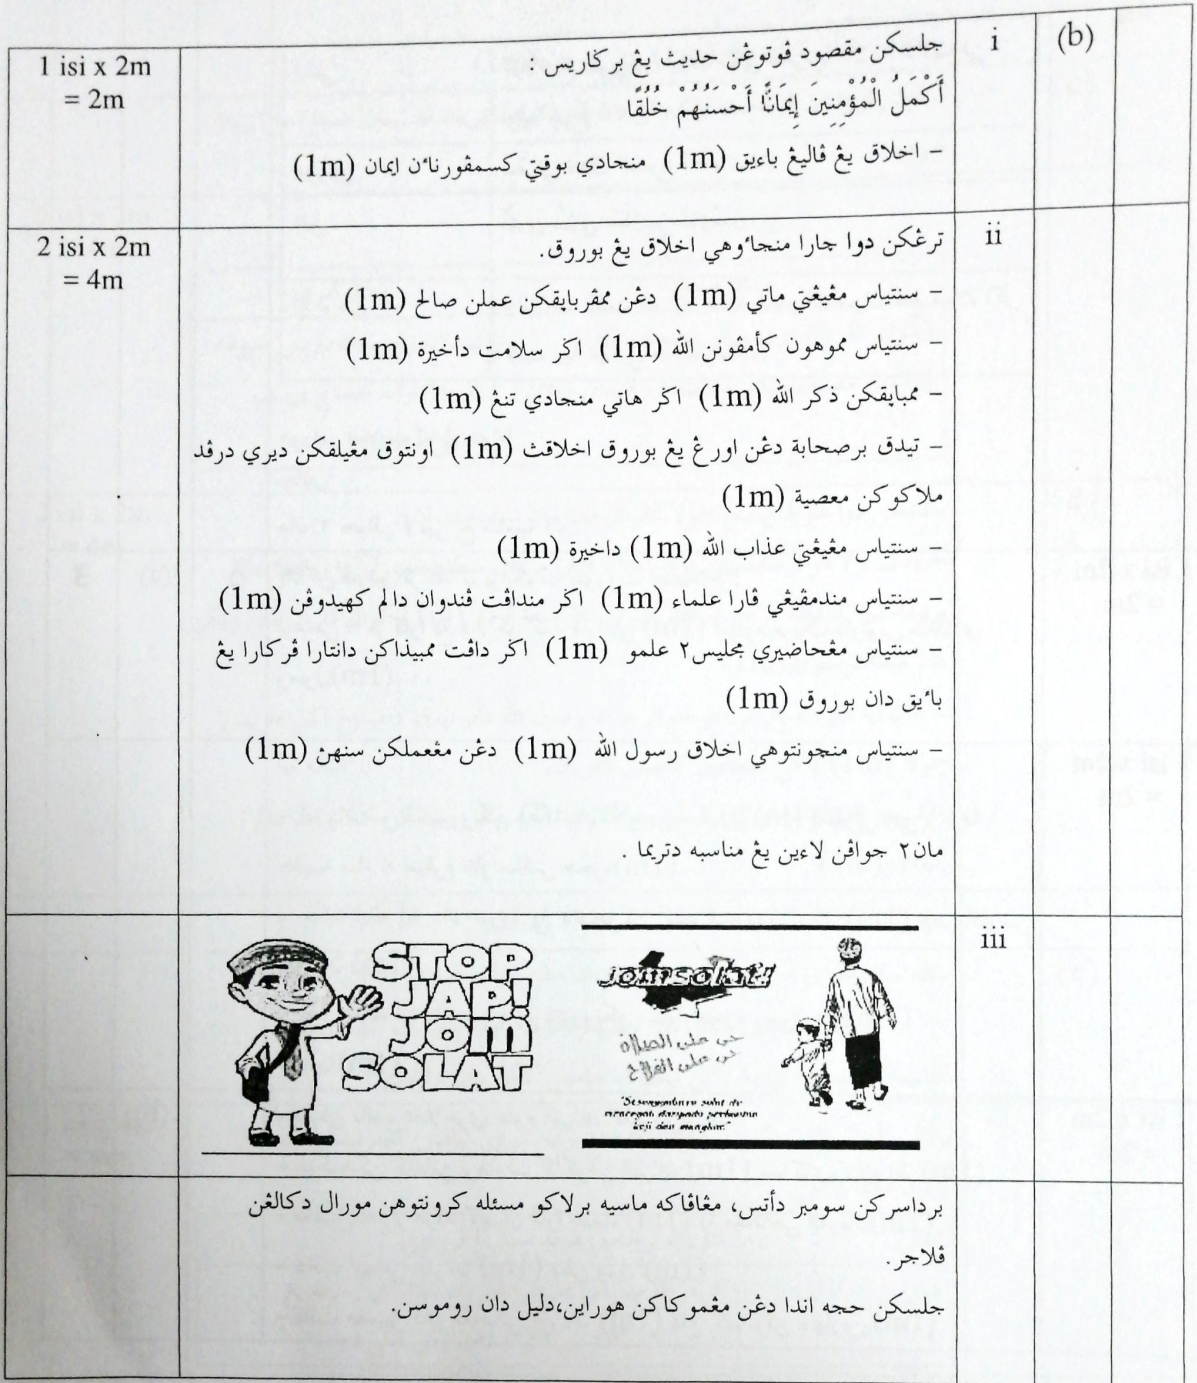 (b)
i
جلسكن مقصود ڤوتوڠن حديث يڠ برݢاريس :
أَكْمَلُ الْمُؤْمِنِينَ إِيمَانًا أَحْسَنُهُمْ خُلُقًا
– اخلاق يڠ ڤاليڠ باءيق (1m) منجادي بوقتي كسمڤورناءن ايمان (1m)
1 isi x 2m
= 2m
ii
ترڠكن دوا چارا منجاءوهي اخلاق يڠ بوروق.
– سنتياس مڠيڠتي ماتي (1m) دڠن ممڤرباڽقكن عملن صالح (1m)
– سنتياس مموهون كأمڤونن الله (1m) اݢر سلامت دأخيرة (1m)
– ممباڽقكن ذكر الله (1m) اݢر هاتي منجادي تنڠ (1m)
– تيدق برصحابة دڠن اورڠ يڠ بوروق اخلاقڽ (1m) اونتوق مڠيلقكن ديري درڤد
ملاكوكن معصية (1m)
– سنتياس مڠيڠتي عذاب الله (1m) داخيرة (1m)
– سنتياس مندمڤيڠي ڤارا علماء (1m) اݢر منداڤت ڤندوان دالم كهيدوڤن (1m)
– سنتياس مڠحاضيري مجليس٢ علمو (1m) اݢر داڤت ممبيذاكن دانتارا ڤركارا يڠ
باءيق دان بوروق (1m)
– سنتياس منچونتوهي اخلاق رسول الله (1m) دڠن مڠعملكن سنهڽ (1m)
مان٢ جواڤن لاءين يڠ مناسبه دتريما .
2 isi x 2m
= 4m
iii
jomsolat!
حي على الصلاة
حي على الفلاح
"Sesungguhnya solat itu
mencegah daripada perbuatan
keji dan mungkar."
STOP
JAP!
JOM
SOLAT
برداسركن سومبر دأتس، مڠاڤاكه ماسيه برلاكو مسئله كرونتوهن مورال دكالڠن
ڤلاجر.
جلسكن حجه اندا دڠن مڠموكاكن هوراين،دليل دان روموسن.